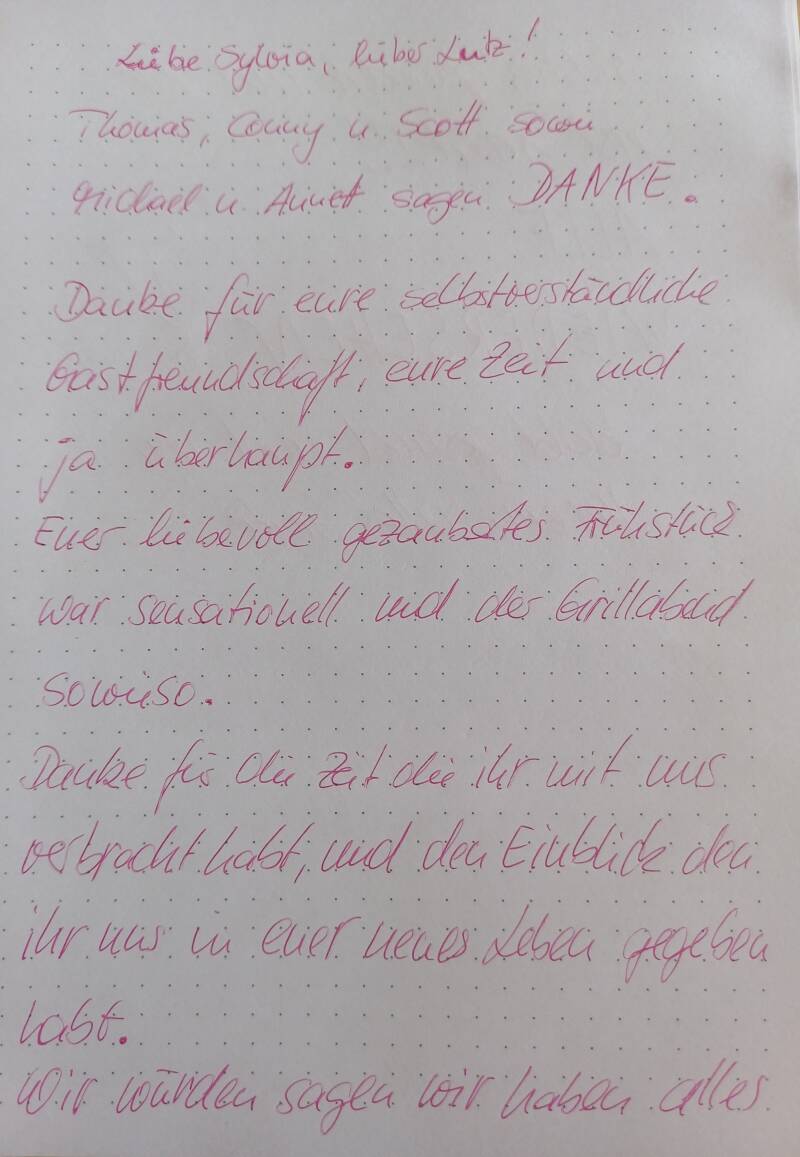 Liebe Sylvia, lieber Lutz!
Thomas, Conny u Scott sowie
Michael u Annett sagen DANKE.
Danke für eure selbstverständliche
Gastfreundschaft, eure Zeit und
ja überhaupt.
Euer liebevoll gezaubertes Frühstück
war sensationell und der Grillabend
sowieso.
Danke für die Zeit die ihr mit uns
verbracht habt, und den Einblick den
ihr uns in euer neues Leben gegeben
habt.
Wir würden sagen wir haben alles